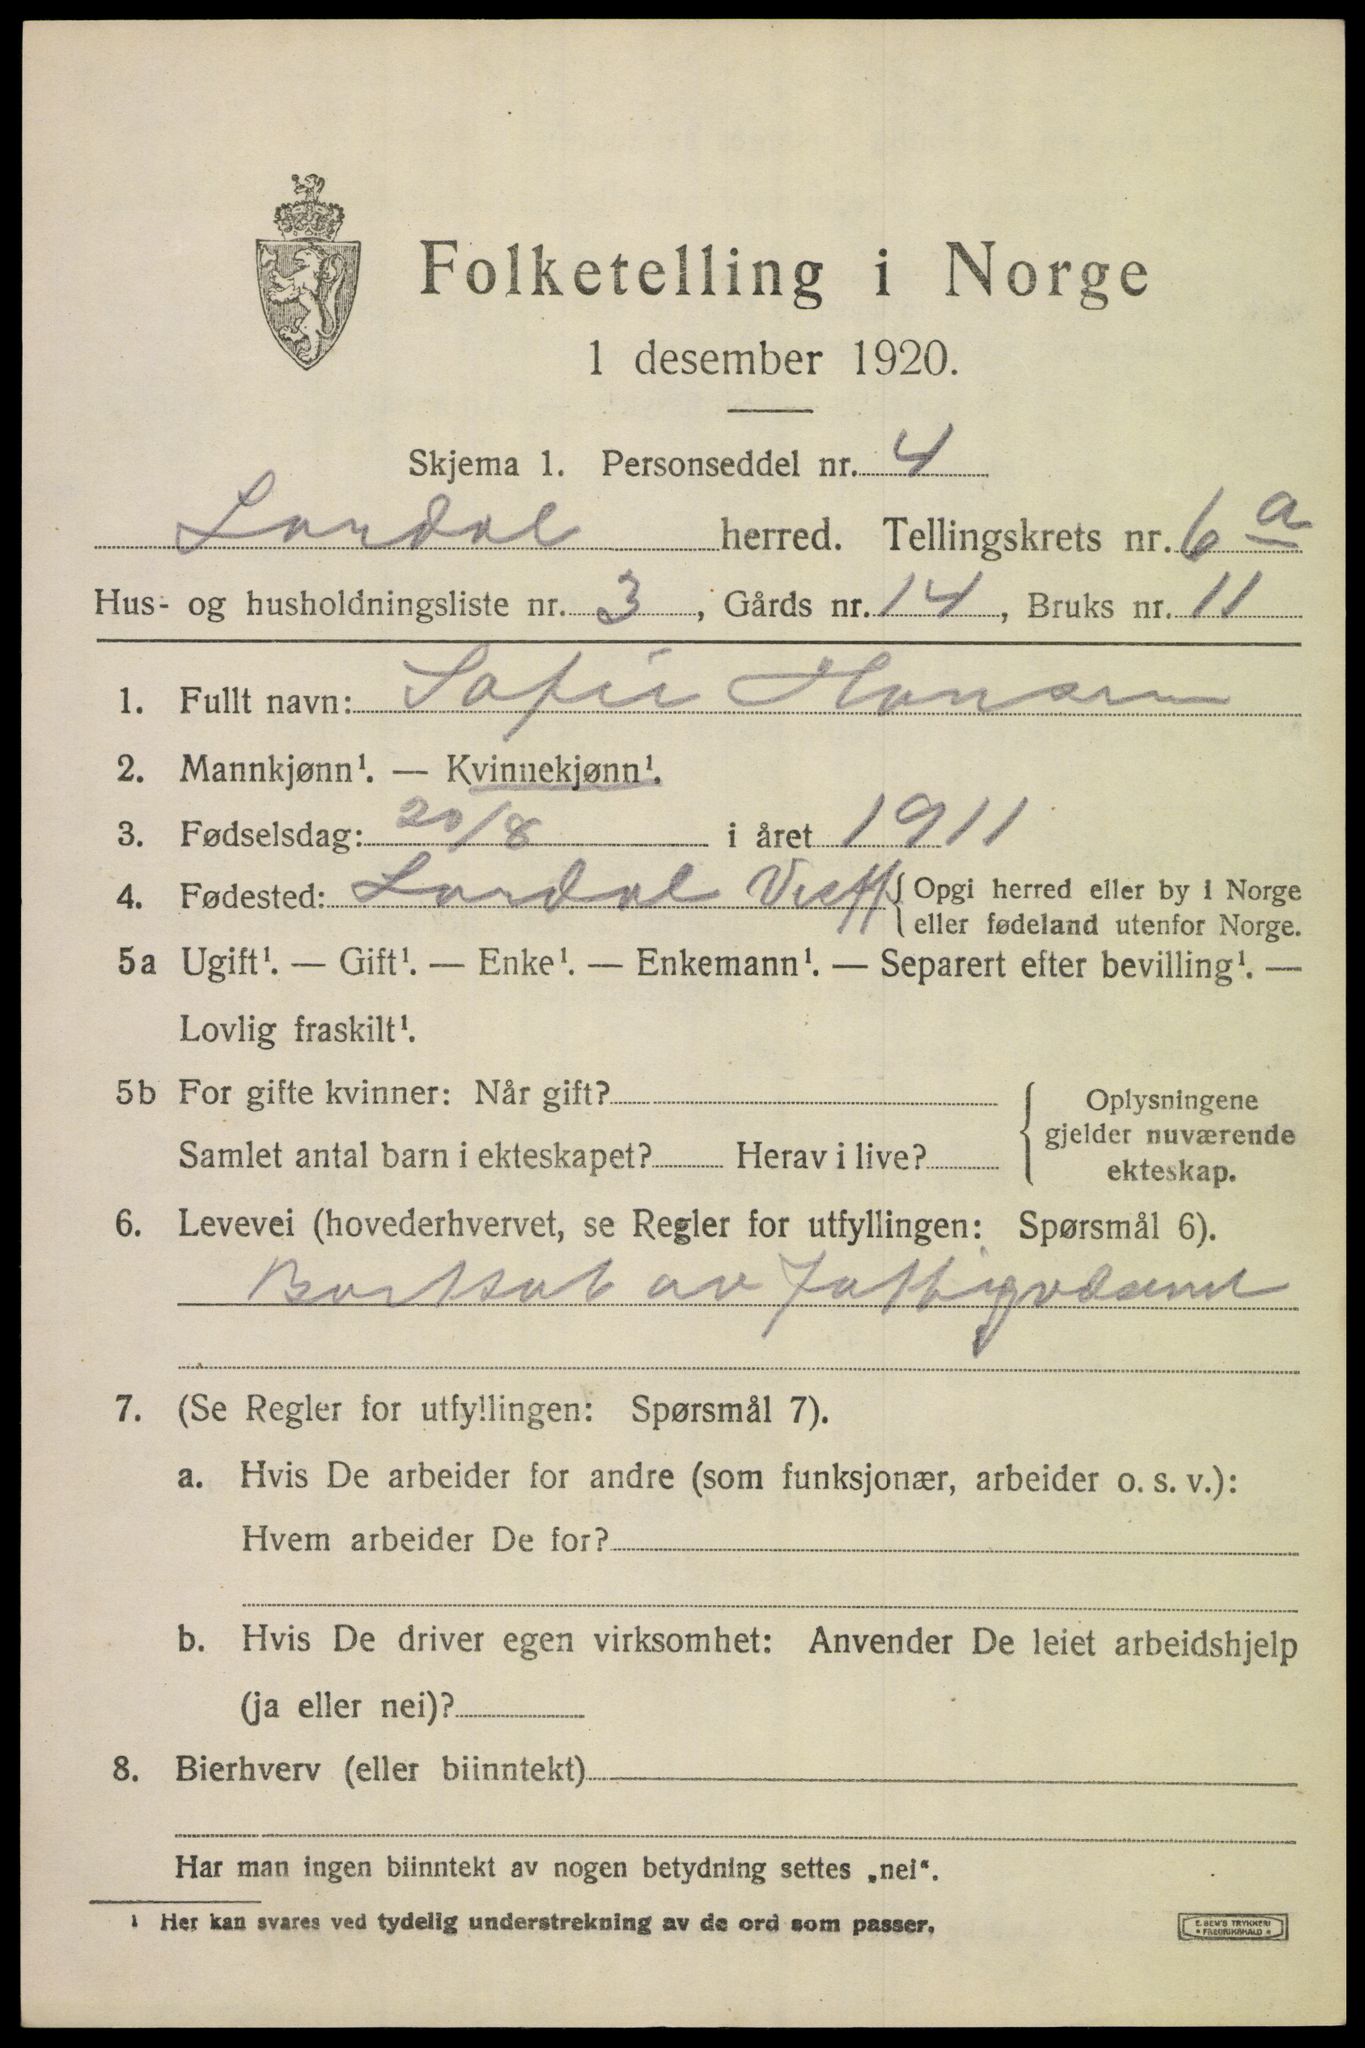 Folketelling i Norge
1 desember 1920.
Skjema 1. Personseddel nr. 4
Lardal herred. Tellingskrets nr. 6 a
Hus- og husholdningsliste nr. 3, Gårds nr. 14, Bruks nr. 11
1. Fullt navn: Sofie Hansen
2. Mannkjønn¹. — Kvinnekjønn¹.
3. Fødselsdag: 20/8 i året 1911
4. Fødested: Lardal Vestf { Opgi herred eller by i Norge
eller fødeland utenfor Norge.
5a Ugift¹. — Gift¹. — Enke¹. — Enkemann¹. — Separert efter bevilling¹. —
Lovlig fraskilt¹.
5b For gifte kvinner: Når gift?
Samlet antal barn i ekteskapet? Herav i live?
{ Oplysningene
gjelder nuværende
ekteskap.
6. Levevei (hovederhvervet, se Regler for utfyllingen: Spørsmål 6).
Bortsat av Fattigvæsenet
7. (Se Regler for utfyllingen: Spørsmål 7).
a. Hvis De arbeider for andre (som funksjonær, arbeider o. s. v.):
Hvem arbeider De for?
b. Hvis De driver egen virksomhet: Anvender De leiet arbeidshjelp
(ja eller nei)?
8. Bierhverv (eller biinntekt)
Har man ingen biinntekt av nogen betydning settes „nei“.
¹ Her kan svares ved tydelig understrekning av de ord som passer.
E. SEM'S TRYKKERI
* FREDRIKSHALD *